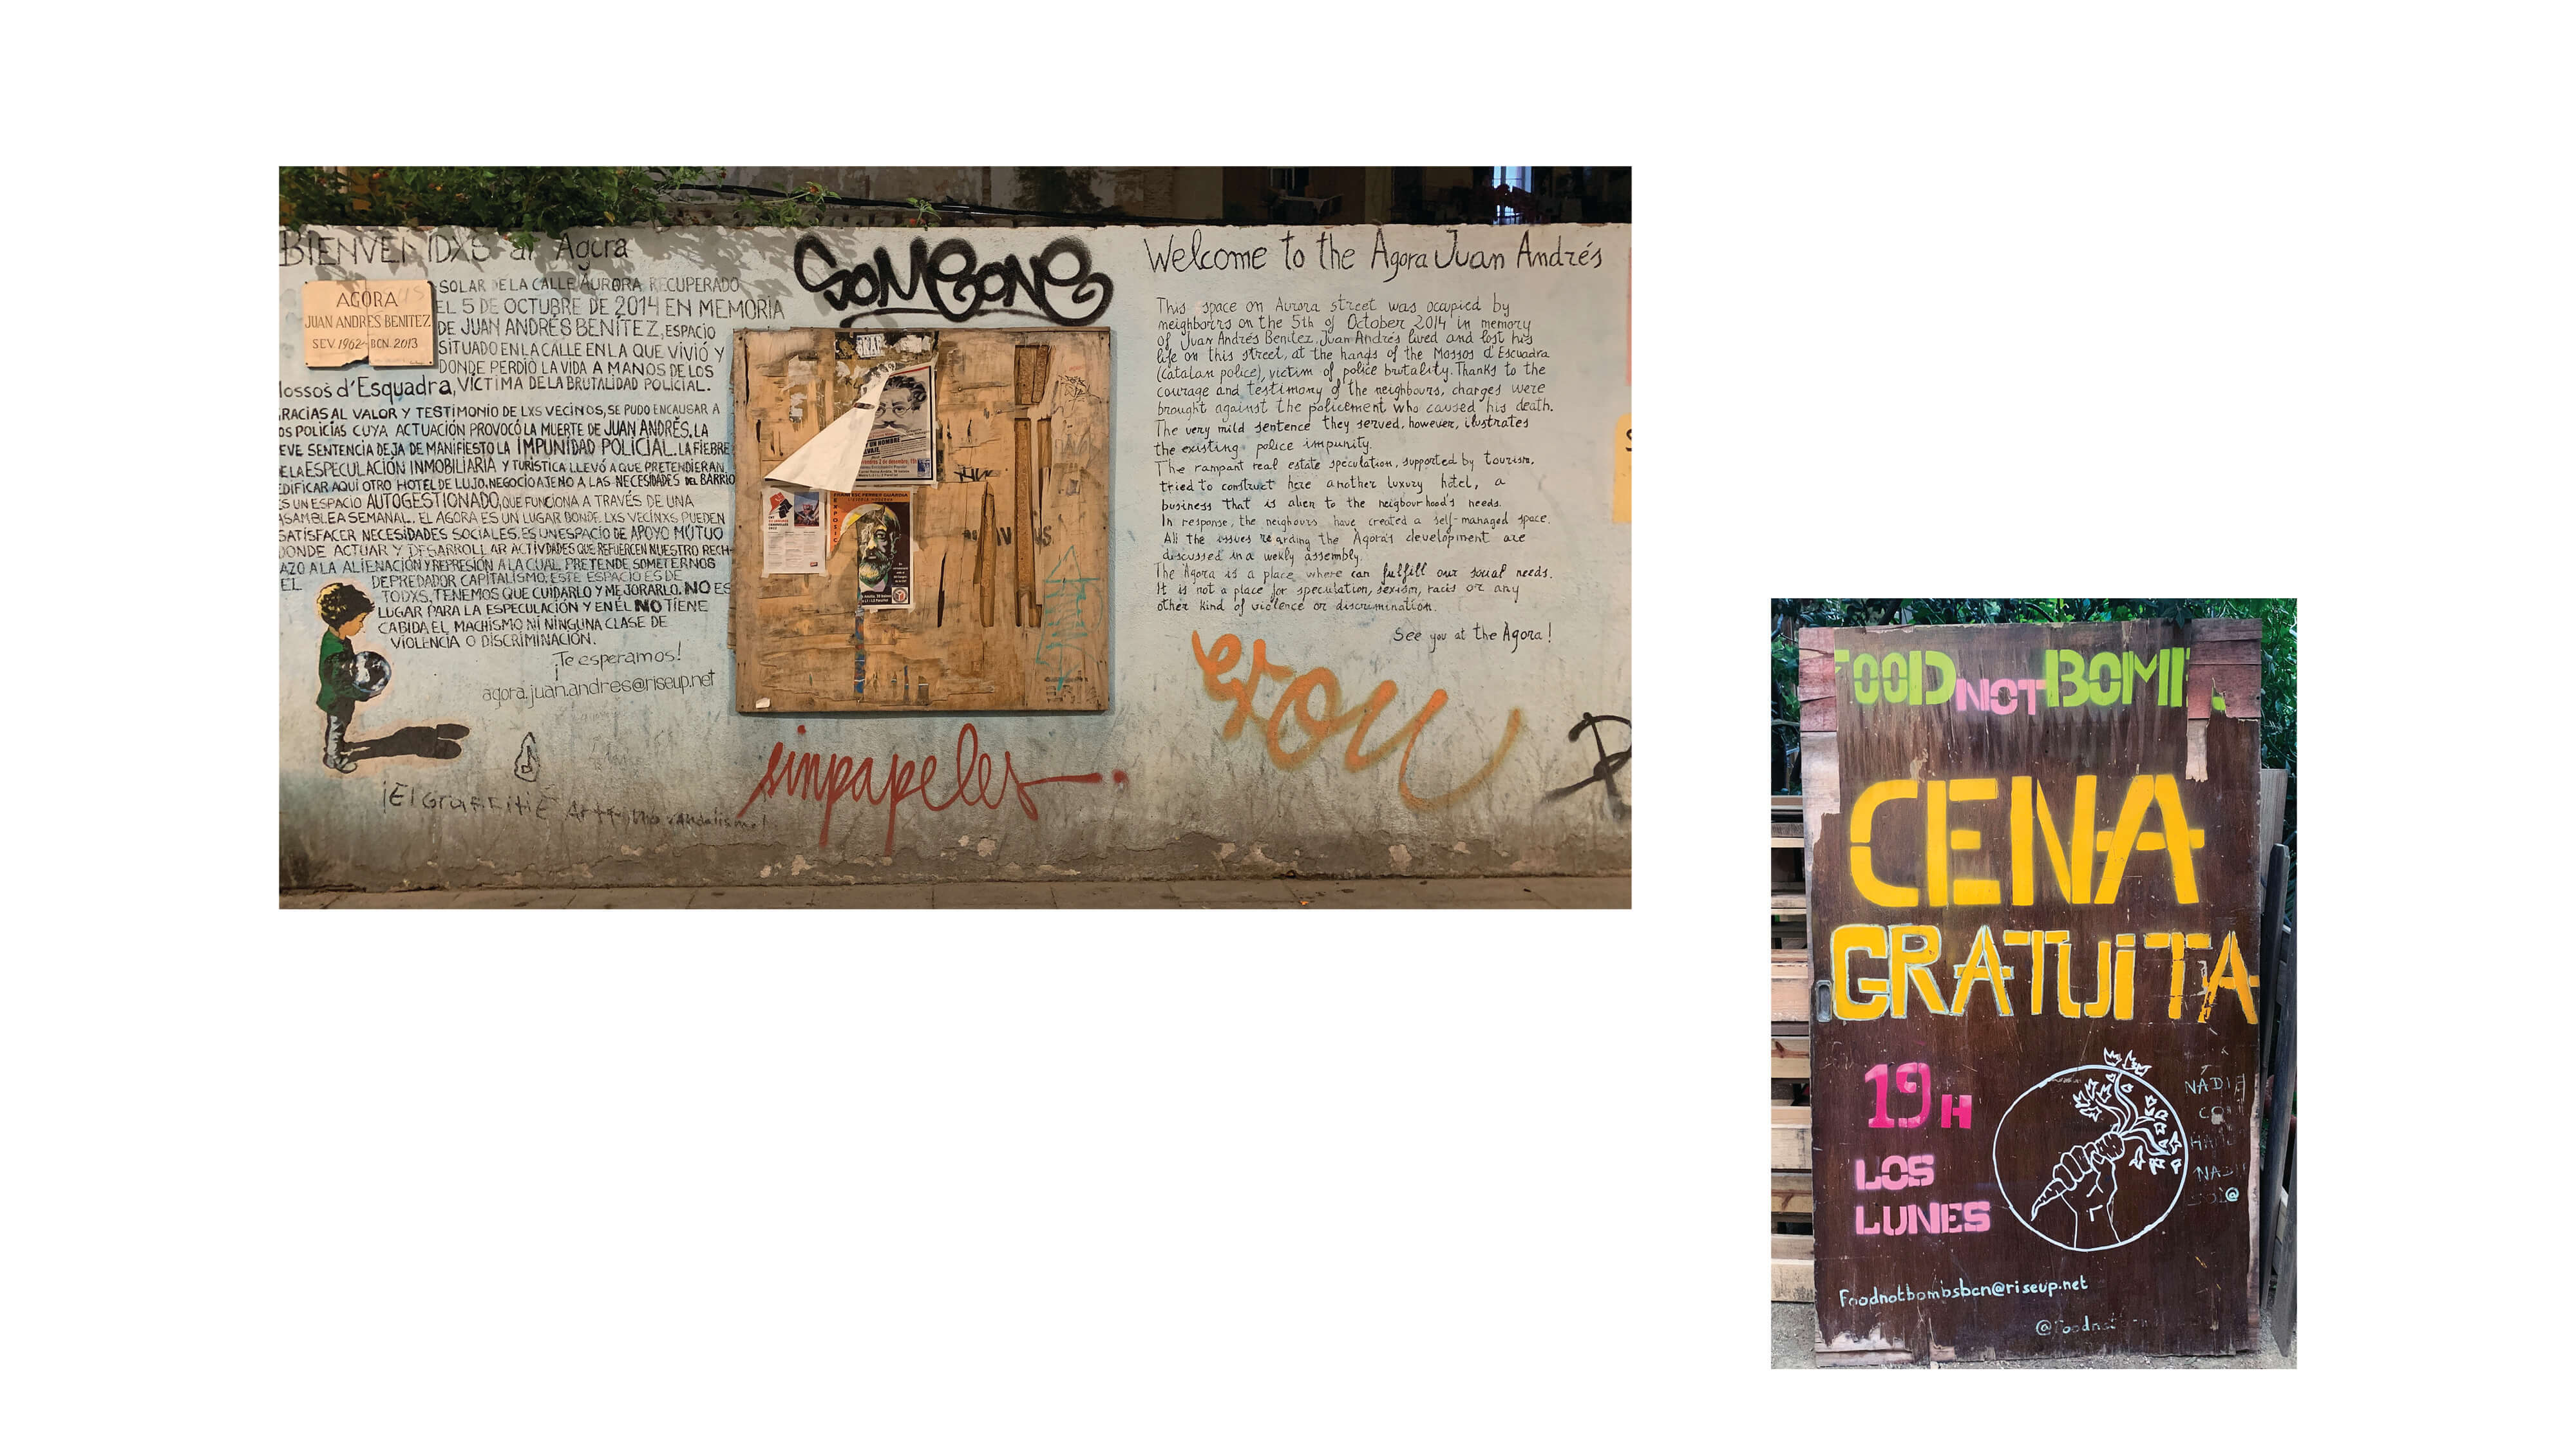 BIENVENIDXS al Agora
AGORA
JUAN ANDRES BENITEZ
SEV. 1962 - BCN. 2013
SOLAR DE LA CALLE AURORA RECUPERADO
EL 5 DE OCTUBRE DE 2014 EN MEMORIA
DE JUAN ANDRÉS BENÍTEZ, ESPACIO
SITUADO EN LA CALLE EN LA QUE VIVIÓ Y
DONDE PERDIÓ LA VIDA A MANOS DE LOS
lossos d'Esquadra, VÍCTIMA DE LA BRUTALIDAD POLICIAL.
RACIAS AL VALOR Y TESTIMONIO DE LXS VECINOS, SE PUDO ENCAUSAR A
OS POLICÍAS CUYA ACTUACIÓN PROVOCÓ LA MUERTE DE JUAN ANDRÉS. LA
EVE SENTENCIA DEJA DE MANIFIESTO LA IMPUNIDAD POLICIAL. LA FIEBRE
E LA ESPECULACIÓN INMOBILIARIA Y TURÍSTICA LLEVÓ A QUE PRETENDIERAN
EDIFICAR AQUÍ OTRO HOTEL DE LUJO, NEGOCIO AJENO A LAS NECESIDADES DEL BARRIO
ES UN ESPACIO AUTOGESTIONADO, QUE FUNCIONA A TRAVÉS DE UNA
ASAMBLEA SEMANAL. EL AGORA ES UN LUGAR DONDE LXS VECINXS PUEDEN
SATISFACER NECESIDADES SOCIALES. ES UN ESPACIO DE APOYO MÚTUO
DONDE ACTUAR Y DESARROLLAR ACTIVDADES QUE REFUERCEN NUESTRO RECH-
AZO A LA ALIENACIÓN Y REPRESIÓN A LA CUAL PRETENDE SOMETERNOS
EL DEPREDADOR CAPITALISMO. ESTE ESPACIO ES DE
TODXS, TENEMOS QUE CUIDARLO Y MEJORARLO. NO ES
LUGAR PARA LA ESPECULACIÓN Y EN ÉL NO TIENE
CABIDA EL MACHISMO NI NINGUNA CLASE DE
VIOLENCIA O DISCRIMINACIÓN.
¡Te esperamos!
agora.juan.andres@riseup.net
¡El Graffiti E Arte no vandalismo!
SOMEONE
sinpapeles
Welcome to the Agora Juan Andrés
This space on Aurora street was ocupied by
neighbours on the 5th of October 2014 in memory
of Juan Andrés Benítez. Juan Andrés lived and lost his
life on this street, at the hands of the Mossos d'Escuadra
(Catalan police), victim of police brutality. Thanks to the
courage and testimony of the neighbours, charges were
brought against the policement who caused his death.
The very mild sentence they served, however, ilustrates
the existing police impunity.
The rampant real estate speculation, supported by tourism,
tried to construct here another luxury hotel, a
business that is alien to the neigbourhood's needs.
In response, the neighours have created a self-managed space.
All the issues regarding the Àgora's development are
discussed in a wekly assembly.
The Àgora is a place where can fulfill our social needs.
It is not a place for speculation, sexism, racis or any
other kind of violence or discrimination.
See you at the Àgora!
FOOD NOT BOMB
CENA
GRATUITA
19H
LOS
LUNES
NADIE
foodnotbombsbcn@riseup.net